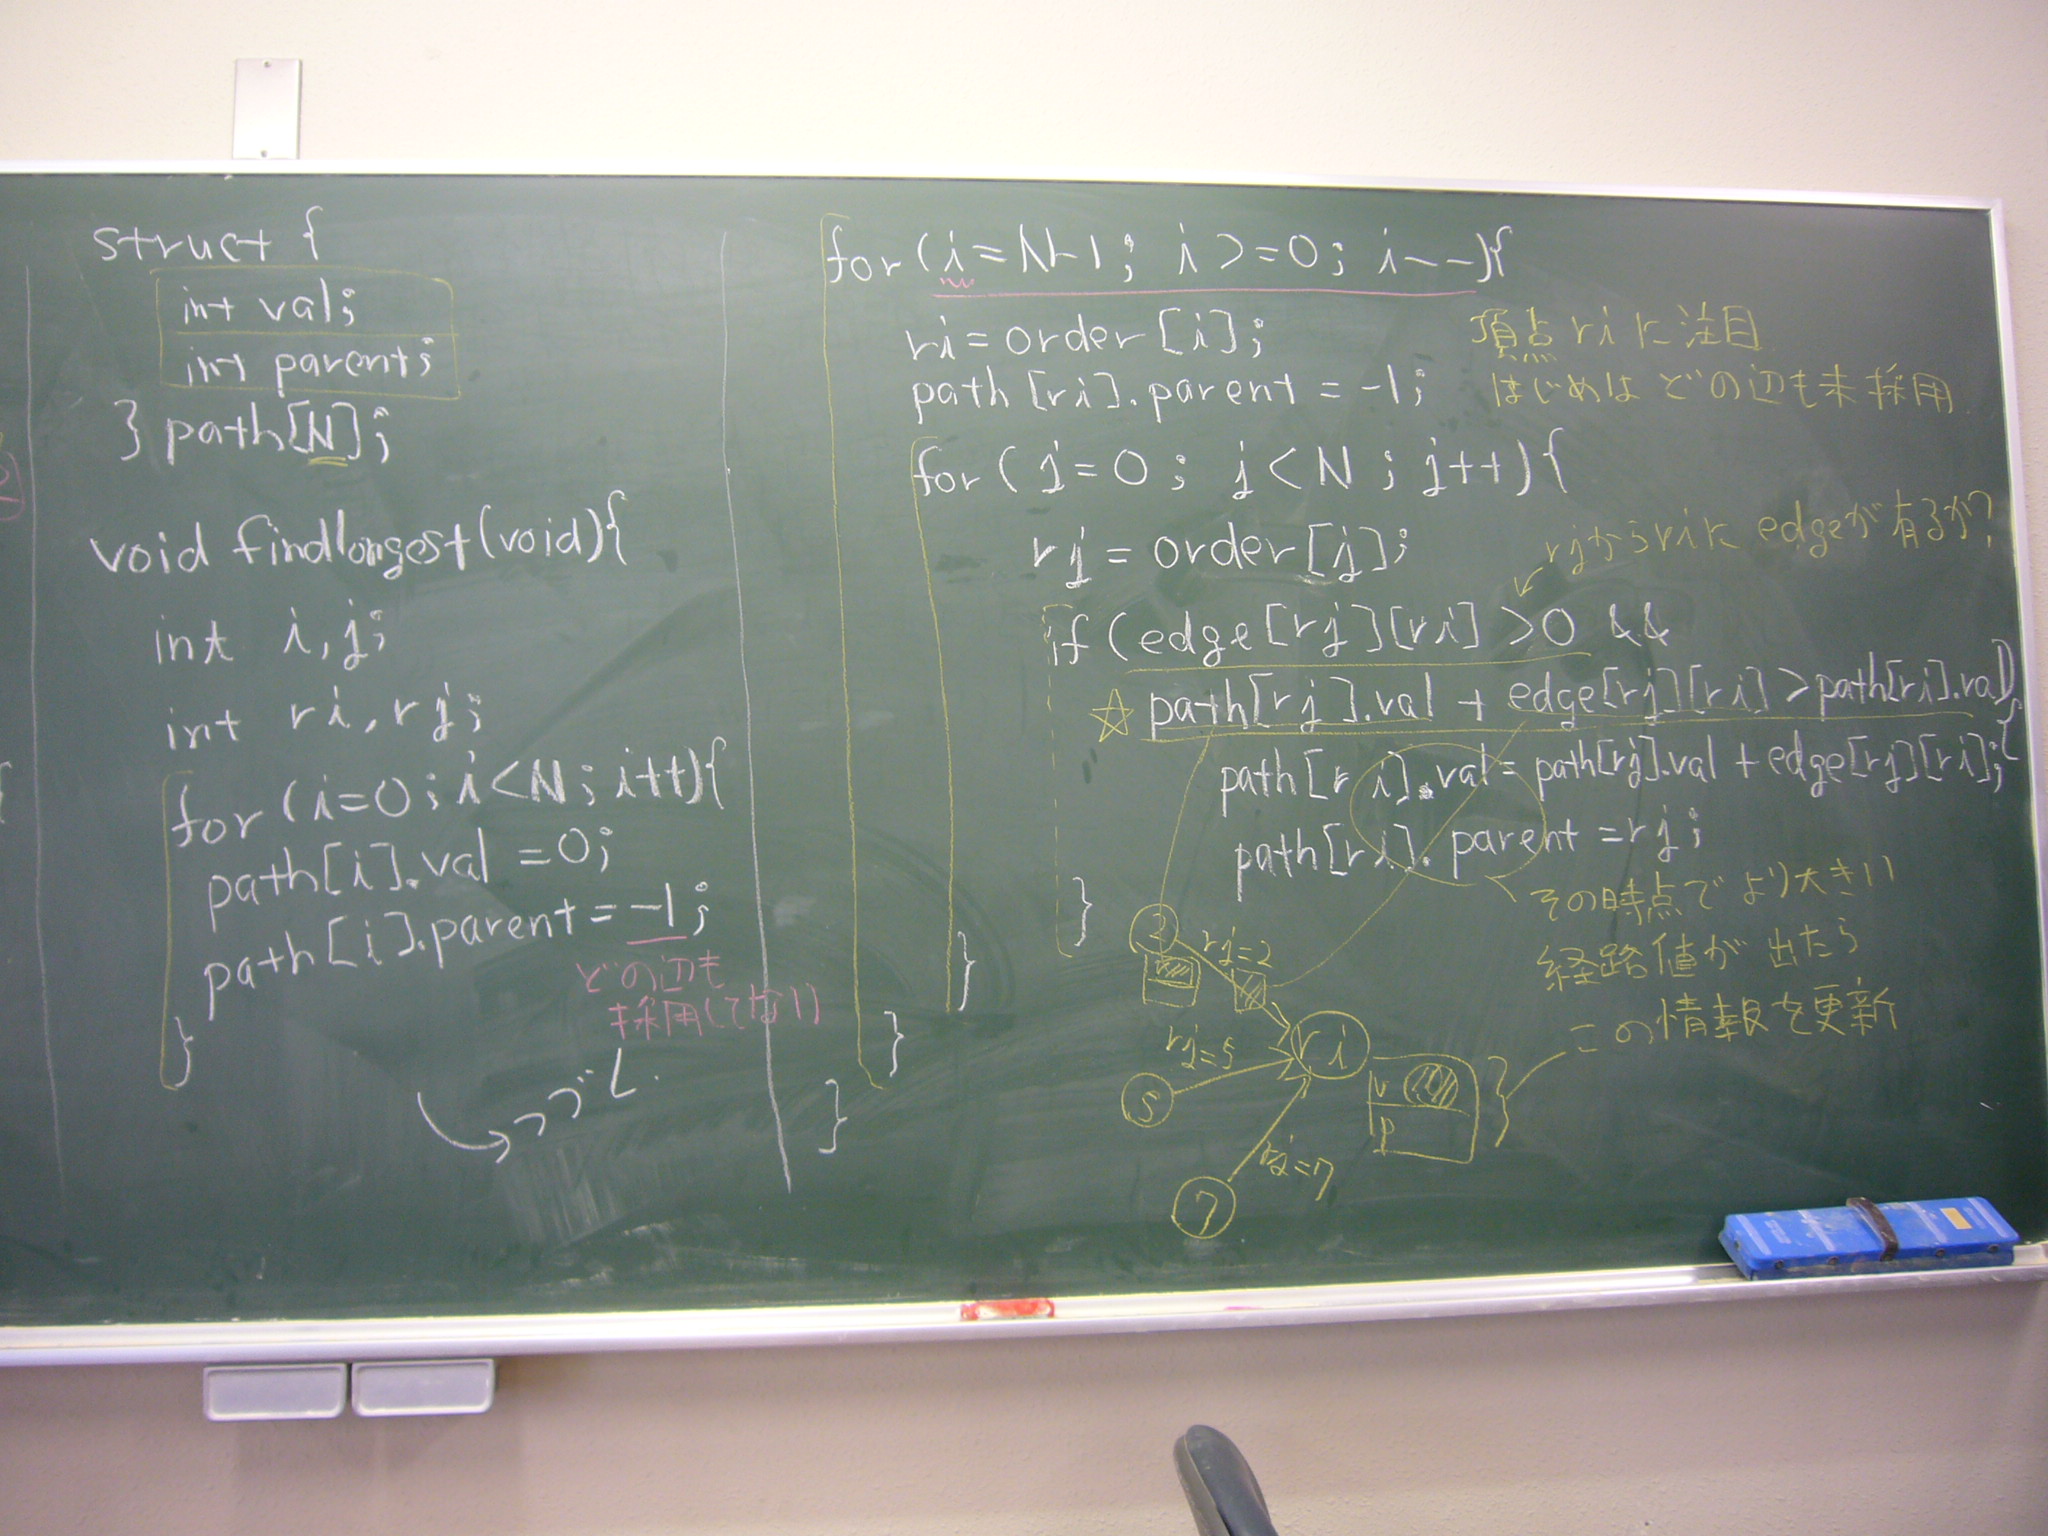 struct {
int val;
int parent;
} path[N];
void findlongest(void){
int i,j;
int ri,rj;
for (i=0;i<N;i++){
path[i].val =0;
path[i].parent = -1;
どの辺も
採用してない
}
つづく.
for (i=N-1; i>=0; i--){
ri=order[i];
頂点riに注目
path[ri].parent = -1;
はじめは どの辺も未採用
for (j=0; j<N; j++){
rj=order[j];
rjからriに edgeが有るか?
if (edge[rj][ri] >0 &&
☆ path[rj].val + edge[rj][ri] >path[ri].val){
path[ri].val= path[rj].val +edge[rj][ri];
path[ri].parent =rj;
}
その時点でより大きい
経路値が出たら
この情報を更新
}
}
}
2
rj=2
ri
rj=5
5
v
p
rj=7
7